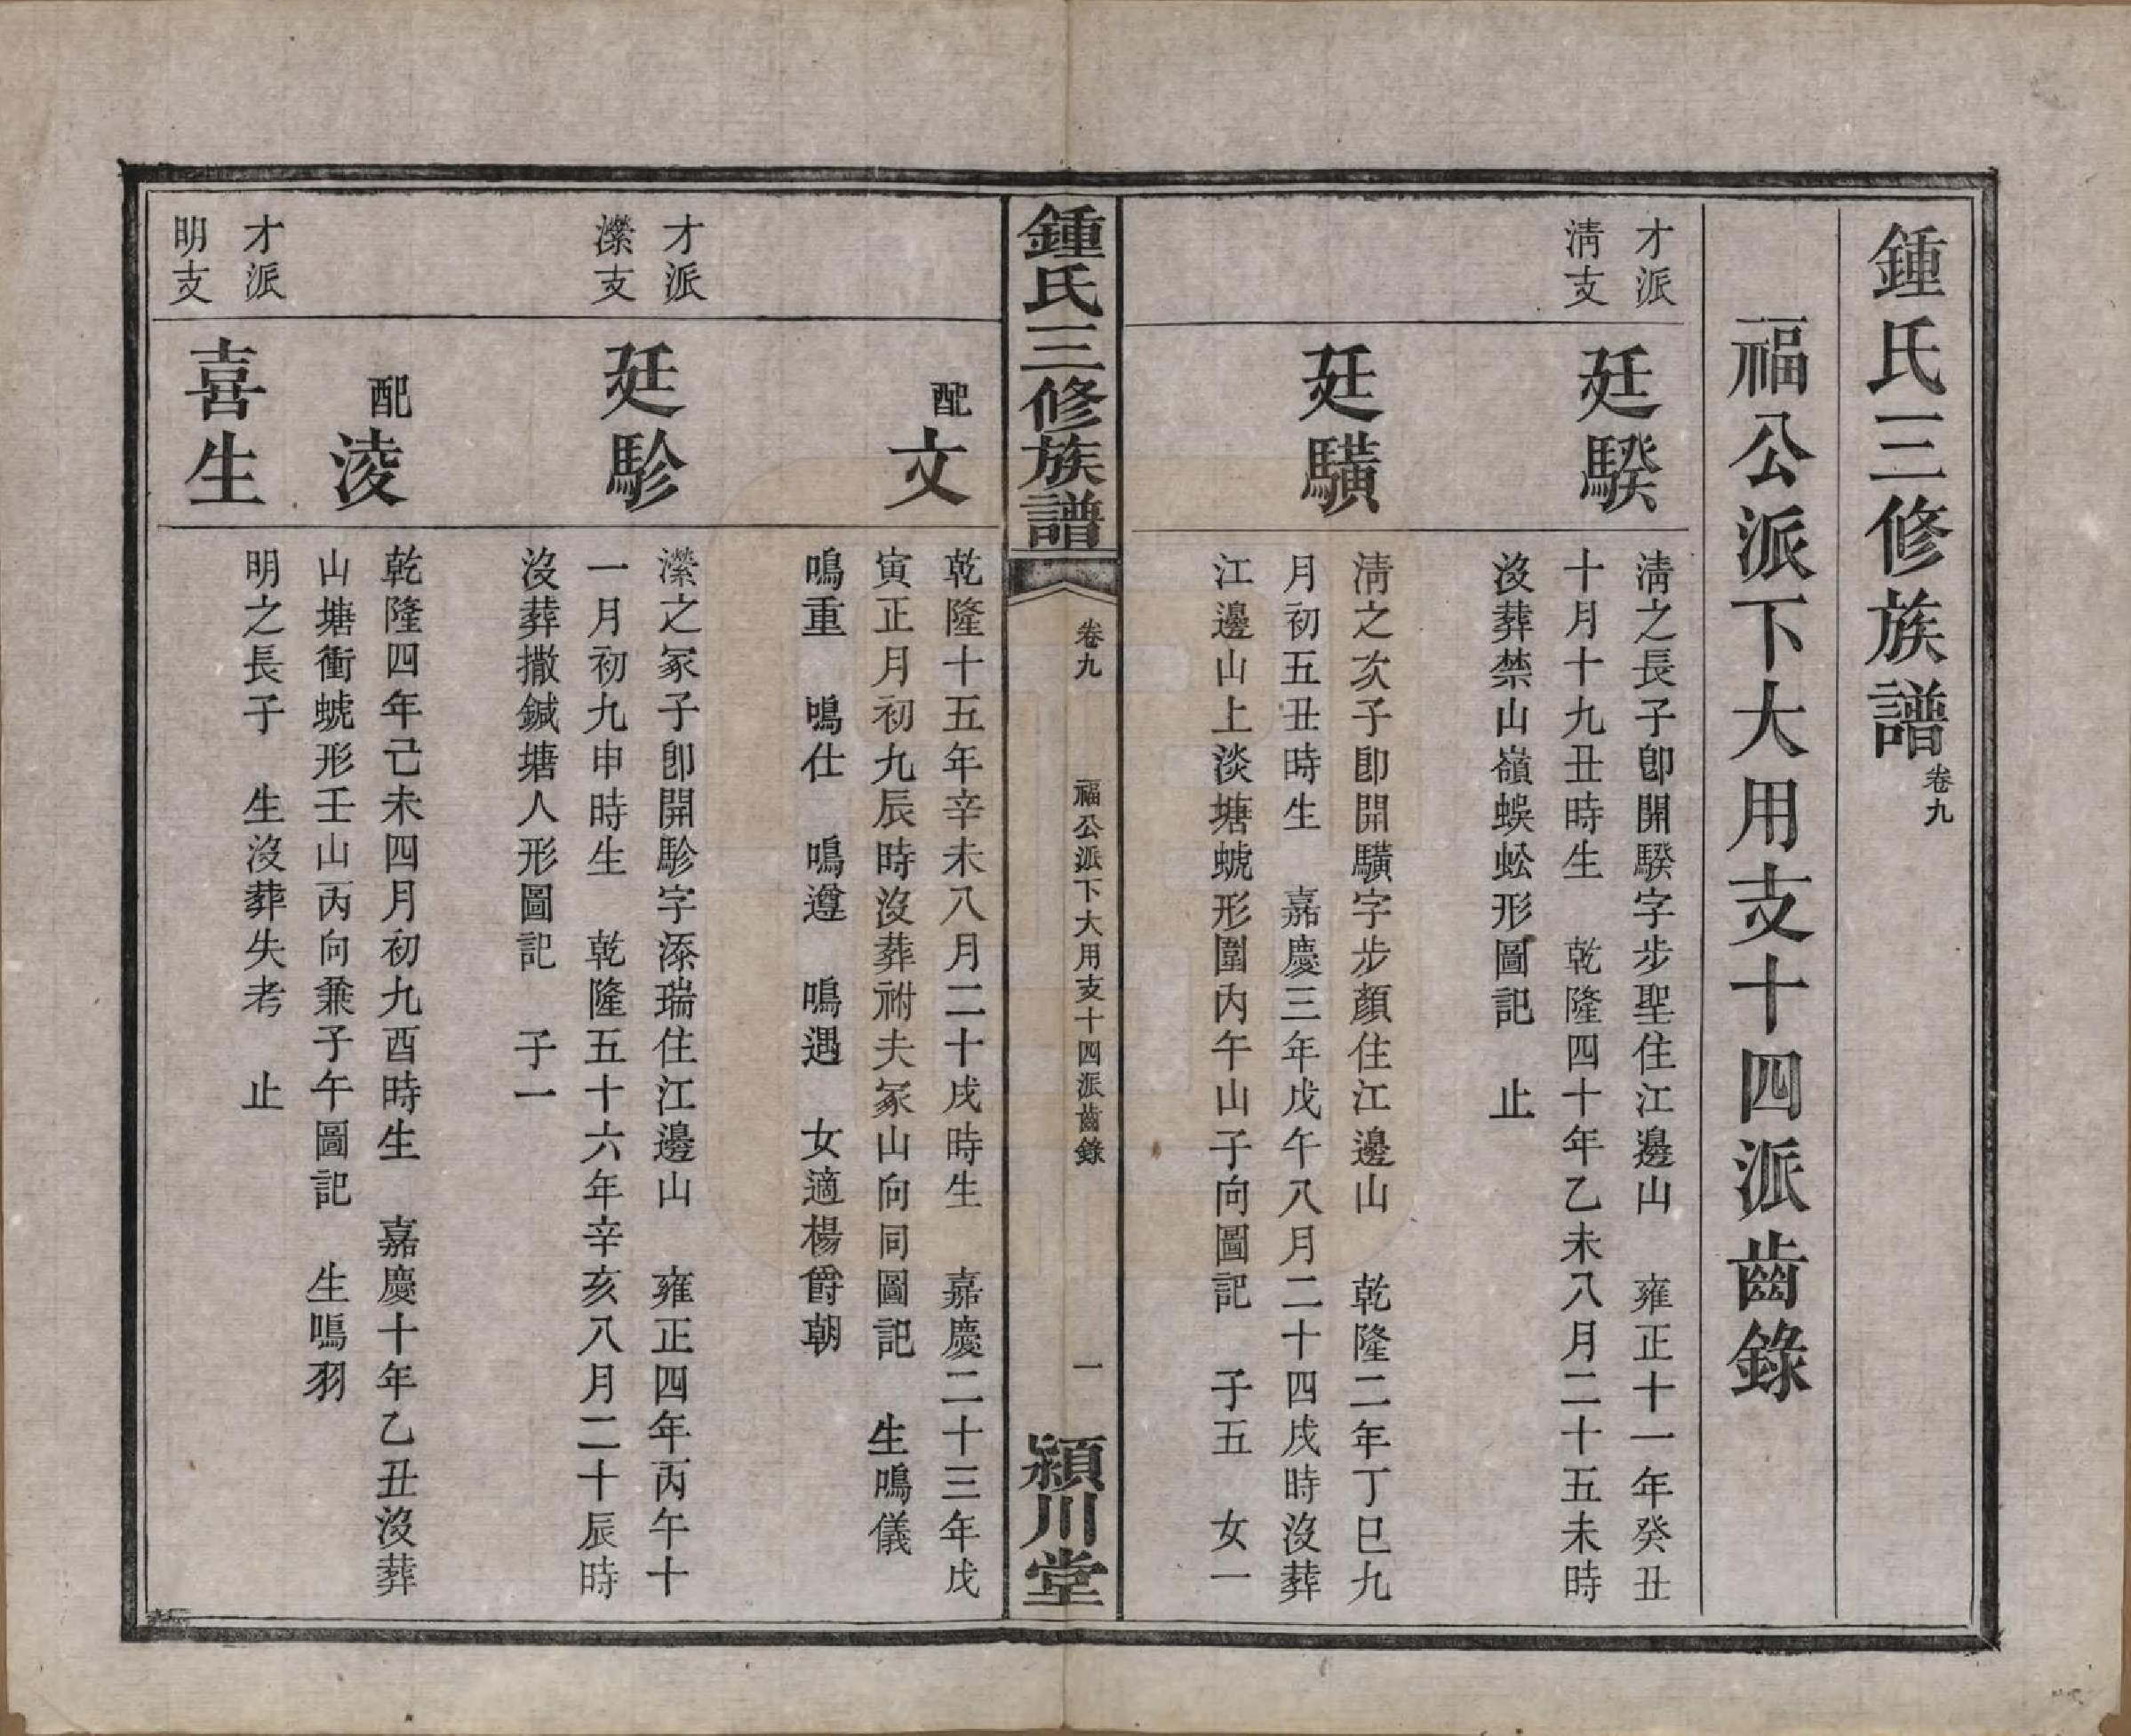 鍾氏三修族譜卷九
福公派下大用支十四派齒錄
才派
淸支
廷騤
淸之長子卽開騤字步聖住江邊山　雍正十一年癸丑
十月十九丑時生　乾隆四十年乙未八月二十五未時
沒葬禁山嶺蜈蚣形圖記　止
廷驥
淸之次子卽開驥字步顏住江邊山　乾隆二年丁巳九
月初五丑時生　嘉慶三年戊午八月二十四戌時沒葬
江邊山上淡塘虓形圍內午山子向圖記　子五　女一
鍾氏三修族譜
卷九
福公派下大用支十四派齒錄
一
潁川堂
配文
乾隆十五年辛未八月二十戌時生　嘉慶二十三年戊
寅正月初九辰時沒葬祔夫冢山向同圖記　生鳴儀
鳴重　鳴仕　鳴遵　鳴遇　女適楊爵朝
才派
濼支
廷駗
濼之冢子卽開駗字添瑞住江邊山　雍正四年丙午十
一月初九申時生　乾隆五十六年辛亥八月二十辰時
沒葬撒鍼塘人形圖記　子一
配淩
乾隆四年己未四月初九酉時生　嘉慶十年乙丑沒葬
山塘衝虓形壬山丙向兼子午圖記　生鳴羽
才派
明支
喜生
明之長子　生沒葬失考　止